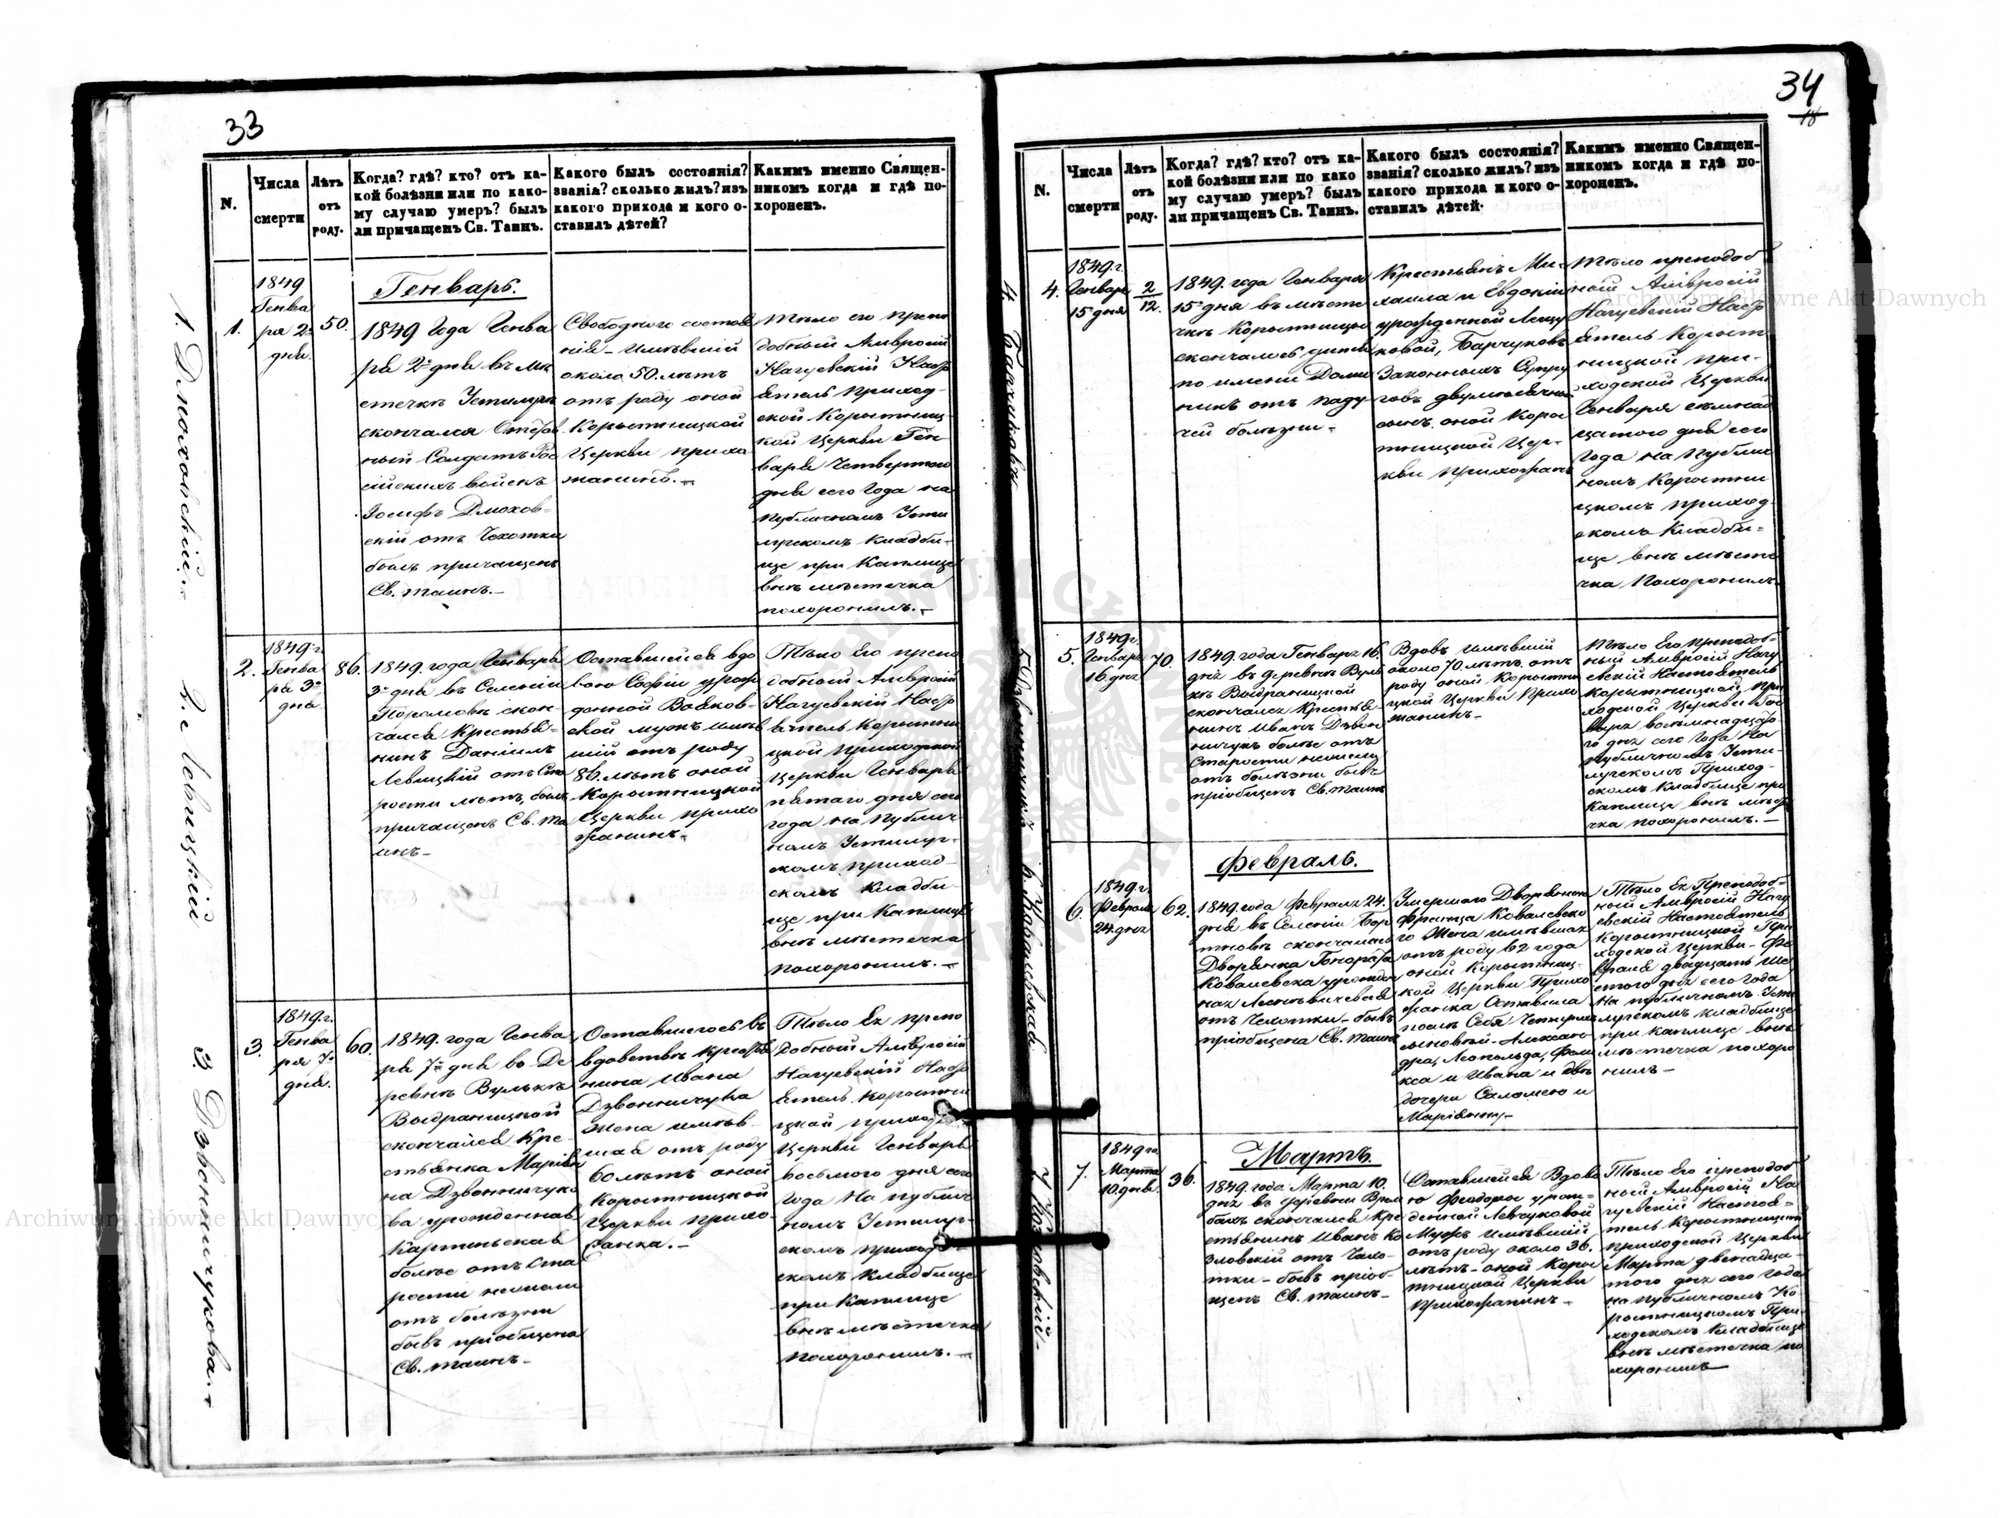 33
N.
Числа
смерти
Лѣтъ
отъ
роду.
Когда? гдѣ? кто? отъ ка-
кой болѣзни или по како-
му случаю умеръ? былъ
ли причащенъ Св. Таинъ.
Какого былъ состоянія?
званія? сколько жилъ? изъ
какого прихода и кого о-
ставилъ дѣтей?
Каким именно Священ-
никомъ когда и гдѣ по-
хороненъ.
1. Дмоховскій.
2. Левицкій
3. Дзвонничукова
Генварь.
1.
1849
Генва
ря 2.
дня.
50.
1849 Года Генва
ря 2 дня въ мѣ
стечкѣ Устилугѣ
скончался Отстав
ный Солдатъ Рос
сійскихъ войскъ
Іосифъ Дмохов-
скій отъ Чахотки
былъ причащенъ
Св. таинъ.
Свободнаго состоя
нія имѣвшій
около 50. лѣтъ
отъ роду оной
Корытницкой
Церкви прихо
жанинъ.
Тѣло его препо
добный Амвросій
Нагуевскій Насто
ятель приход-
ской Корытниц-
кой Церкви Ген-
варя Четвертого
дня сего Года на
публичномъ Усти
лугскомъ кладби-
ще при Каплице
внѣ мѣстечка
похоронилъ.
2.
1849 г.
Генва
ря 3
дня
86.
1849. года Генваря
3 дня въ Селеніи
Поромовѣ скон-
чался Крестья-
нинъ Даніилъ
Левицкій отъ Ста
рости лѣтъ, былъ
причащенъ Св. Та
инъ
Оставшейся вдо
вою Софіи урож
донной Вояков-
ской мужъ имѣв
шій отъ роду
86. лѣтъ оной
Корытницкой
Церкви прихо
жанинъ.
Тѣло Его препо
добный Амвросій
Нагуевскій Насто
ятель Корытни
цкой приходской
Церкви Генваря
пятаго дня сего
года на публич
номъ Устилуг-
скомъ приход-
скомъ кладби-
ще при Каплице
внѣ мѣстечка
похоронилъ.
3.
1849. г.
Генва
ря 7
дня.
60.
1849. года Генва
ря 7 дня во Де
ревнѣ Вулькѣ
Выдраницкой
скончалась Кре-
стьянка Маріян
на Дзвонничуко
ва урожденная
Карпинская
болѣе отъ Ста
рости нежели
отъ болѣзни
бывъ пріобщена
Св. таинъ
Оставшегося въ
вдовствѣ Крестья
нина Ивана
Дзвонничука
Жена имѣв-
шая отъ роду
60 лѣтъ оной
Корытницкой
Церкви прихо-
жанка.
Тѣло Ея препо
добный Амвросій
Нагуевскій Насто
ятель Корытни
цкой приходской
Церкви Генваря
восьмого дня сего
года на публич
номъ Устилуг-
скомъ приход
скомъ кладбище
при Каплице
внѣ мѣстечка
похоронилъ.
34
N.
Числа
смерти
Лѣтъ
отъ
роду.
Когда? гдѣ? кто? отъ ка-
кой болѣзни или по како
му случаю умеръ? былъ
ли причащенъ Св. Таинъ.
Какого былъ состоянія?
званія? сколько жилъ? изъ
какого прихода и кого о-
ставилъ дѣтей.
Каким именно Священ-
никомъ когда и гдѣ по-
хороненъ.
4.
5. Дзвонницкій
6. Ковалевская
7. Козловскій
4.
1849 г.
Генваря
15 дня
2
12.
1849. года Генваря
15 дня въ мѣсте
чкѣ Корытницы
скончалось дитя
по имени Доми
никъ отъ паду
чей болѣзни
Крестьянъ Ми-
хаила и Евдокіи
урожденной Лещу
ковой, Барчуковъ
Законныхъ Супру
говъ двумѣсячный
сынъ оной Коры
тницкой Цер-
кви прихожанъ
Тѣло преподоб
ный Амвросій
Нагуевскій Насто
ятель Корыт
ницкой при-
ходской Церкви
Генваря семнад
цатого дня сего
года на публич
номъ Корытни
цкомъ приход-
скомъ Кладби-
ще внѣ мѣсте
чка похоронилъ
5.
1849 г.
Генваря
16 дня
70.
1849. года Генваря 16.
дня въ деревнѣ Вуль
кѣ Выдраницкой
скончался Крестья-
нинъ Иванъ Дзвон
ничукъ болѣе отъ
Старости нежели
отъ болѣзни бывъ
пріобщенъ Св. таинъ
Вдовъ имѣвшій
около 70 лѣтъ отъ
роду оной Корытни
цкой Церкви Прихо
жанинъ
Тѣло Его преподоб-
ный Амвросій Нагу
евскій Настоятель
Корытницкой при
ходской Церкви Ген
варя восьмнадцато
го дня сего Года На
публичномъ Усти-
лугскомъ Приход-
скомъ Кладбище при
Каплице внѣ мѣсте
чка похоронилъ.
Февраль.
6.
1849. г.
Февраля
24. дня
62.
1849. года Февраля 24.
дня въ Селеніи Бор-
тновѣ скончалась
Дворянка Гонората
Ковалевска урожден
ная Леоневичевая
отъ Чахотки бывъ
пріобщена Св. таинъ
Умершаго Дворянина
Франца Ковалевско
го Жена имѣвшая
отъ роду 62 года
оной Корытниц-
кой Церкви Прихо
жанка Оставила
послѣ Себя Четырехъ
сыновей Алексан-
дра, Леопольда, Фели
кса и Ивана и двѣ
дочери Саломею и
Маріянну
Тѣло Ея Преподоб-
ный Амвросій Нагу
евскій Настоятель
Корытницкой При
ходской Церкви Фе-
враля двадцать ше
стого дня сего Года
На публичномъ Усти
лугскомъ кладбище
при каплице внѣ
мѣстечка похоро
нилъ
Мартъ.
7.
1849 го
Марта
10. дня.
36.
1849. года Марта 10.
дня въ деревни
скончался Кре
стьянинъ Иванъ Ко
зловскій отъ Чахо-
тки бывъ пріоб-
щенъ Св. таинъ
Оставшейся Вдово
ю Феодоры урож-
денной Левчуковой
Мужъ имѣвшій
отъ роду около 36.
лѣтъ оной Коры
тницкой Церкви
Прихожанинъ
Тѣло Его преподоб
ный Амвросій На
гуевскій Настоя-
тель Корытницкой
приходской Церкви
Марта двенадца-
того дня сего года
на публичномъ Ко
рытницкомъ При-
ходскомъ Кладбище
внѣ мѣстечка по
хоронилъ
Archiwum Główne Akt Dawnych
Archiwum Główne Akt Dawnych